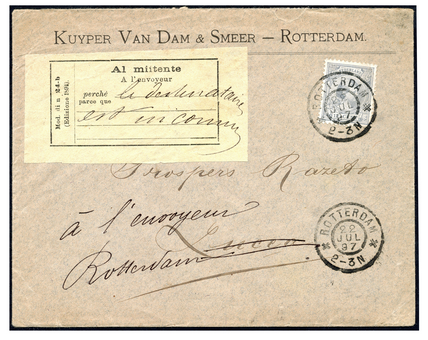 KUYPER VAN DAM & SMEER — ROTTERDAM.
Mod. di n 24-b
(Edizione 1894)
Al mittente
A l'envoyeur
perché
parce que
le destinataire
est inconnu
ROTTERDAM
JUL
97
2-3N
Prospero Razeto
Lucca
à l'envoyeur
Rotterdam
ROTTERDAM
22
JUL
97
2-3N